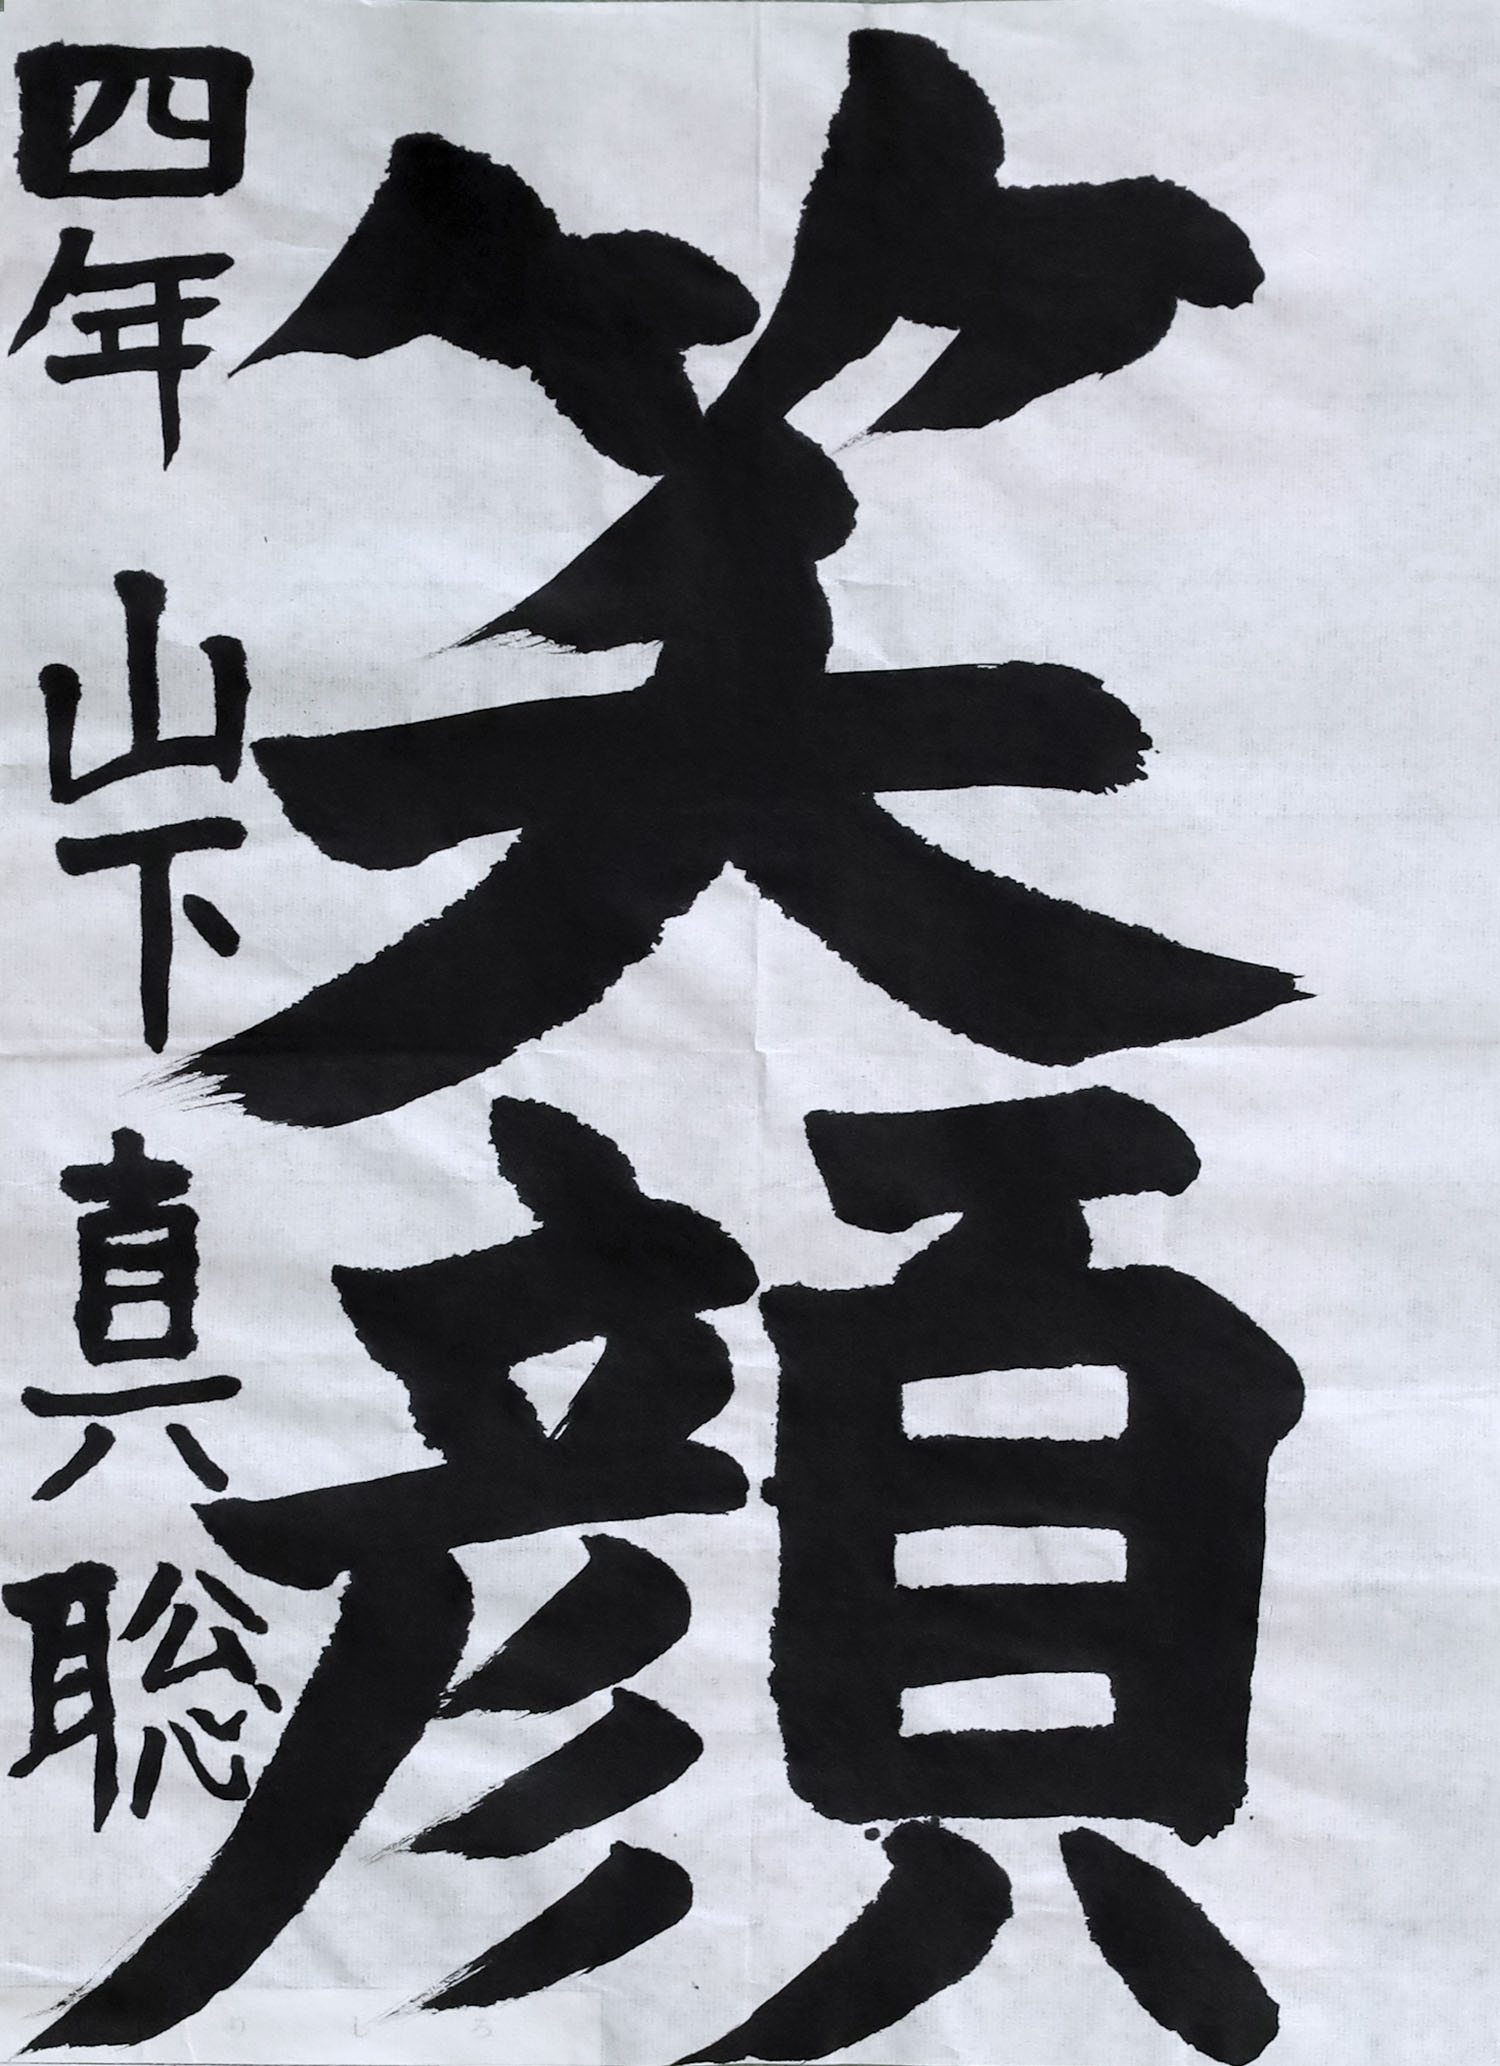 笑顔
四年 山下 真聡